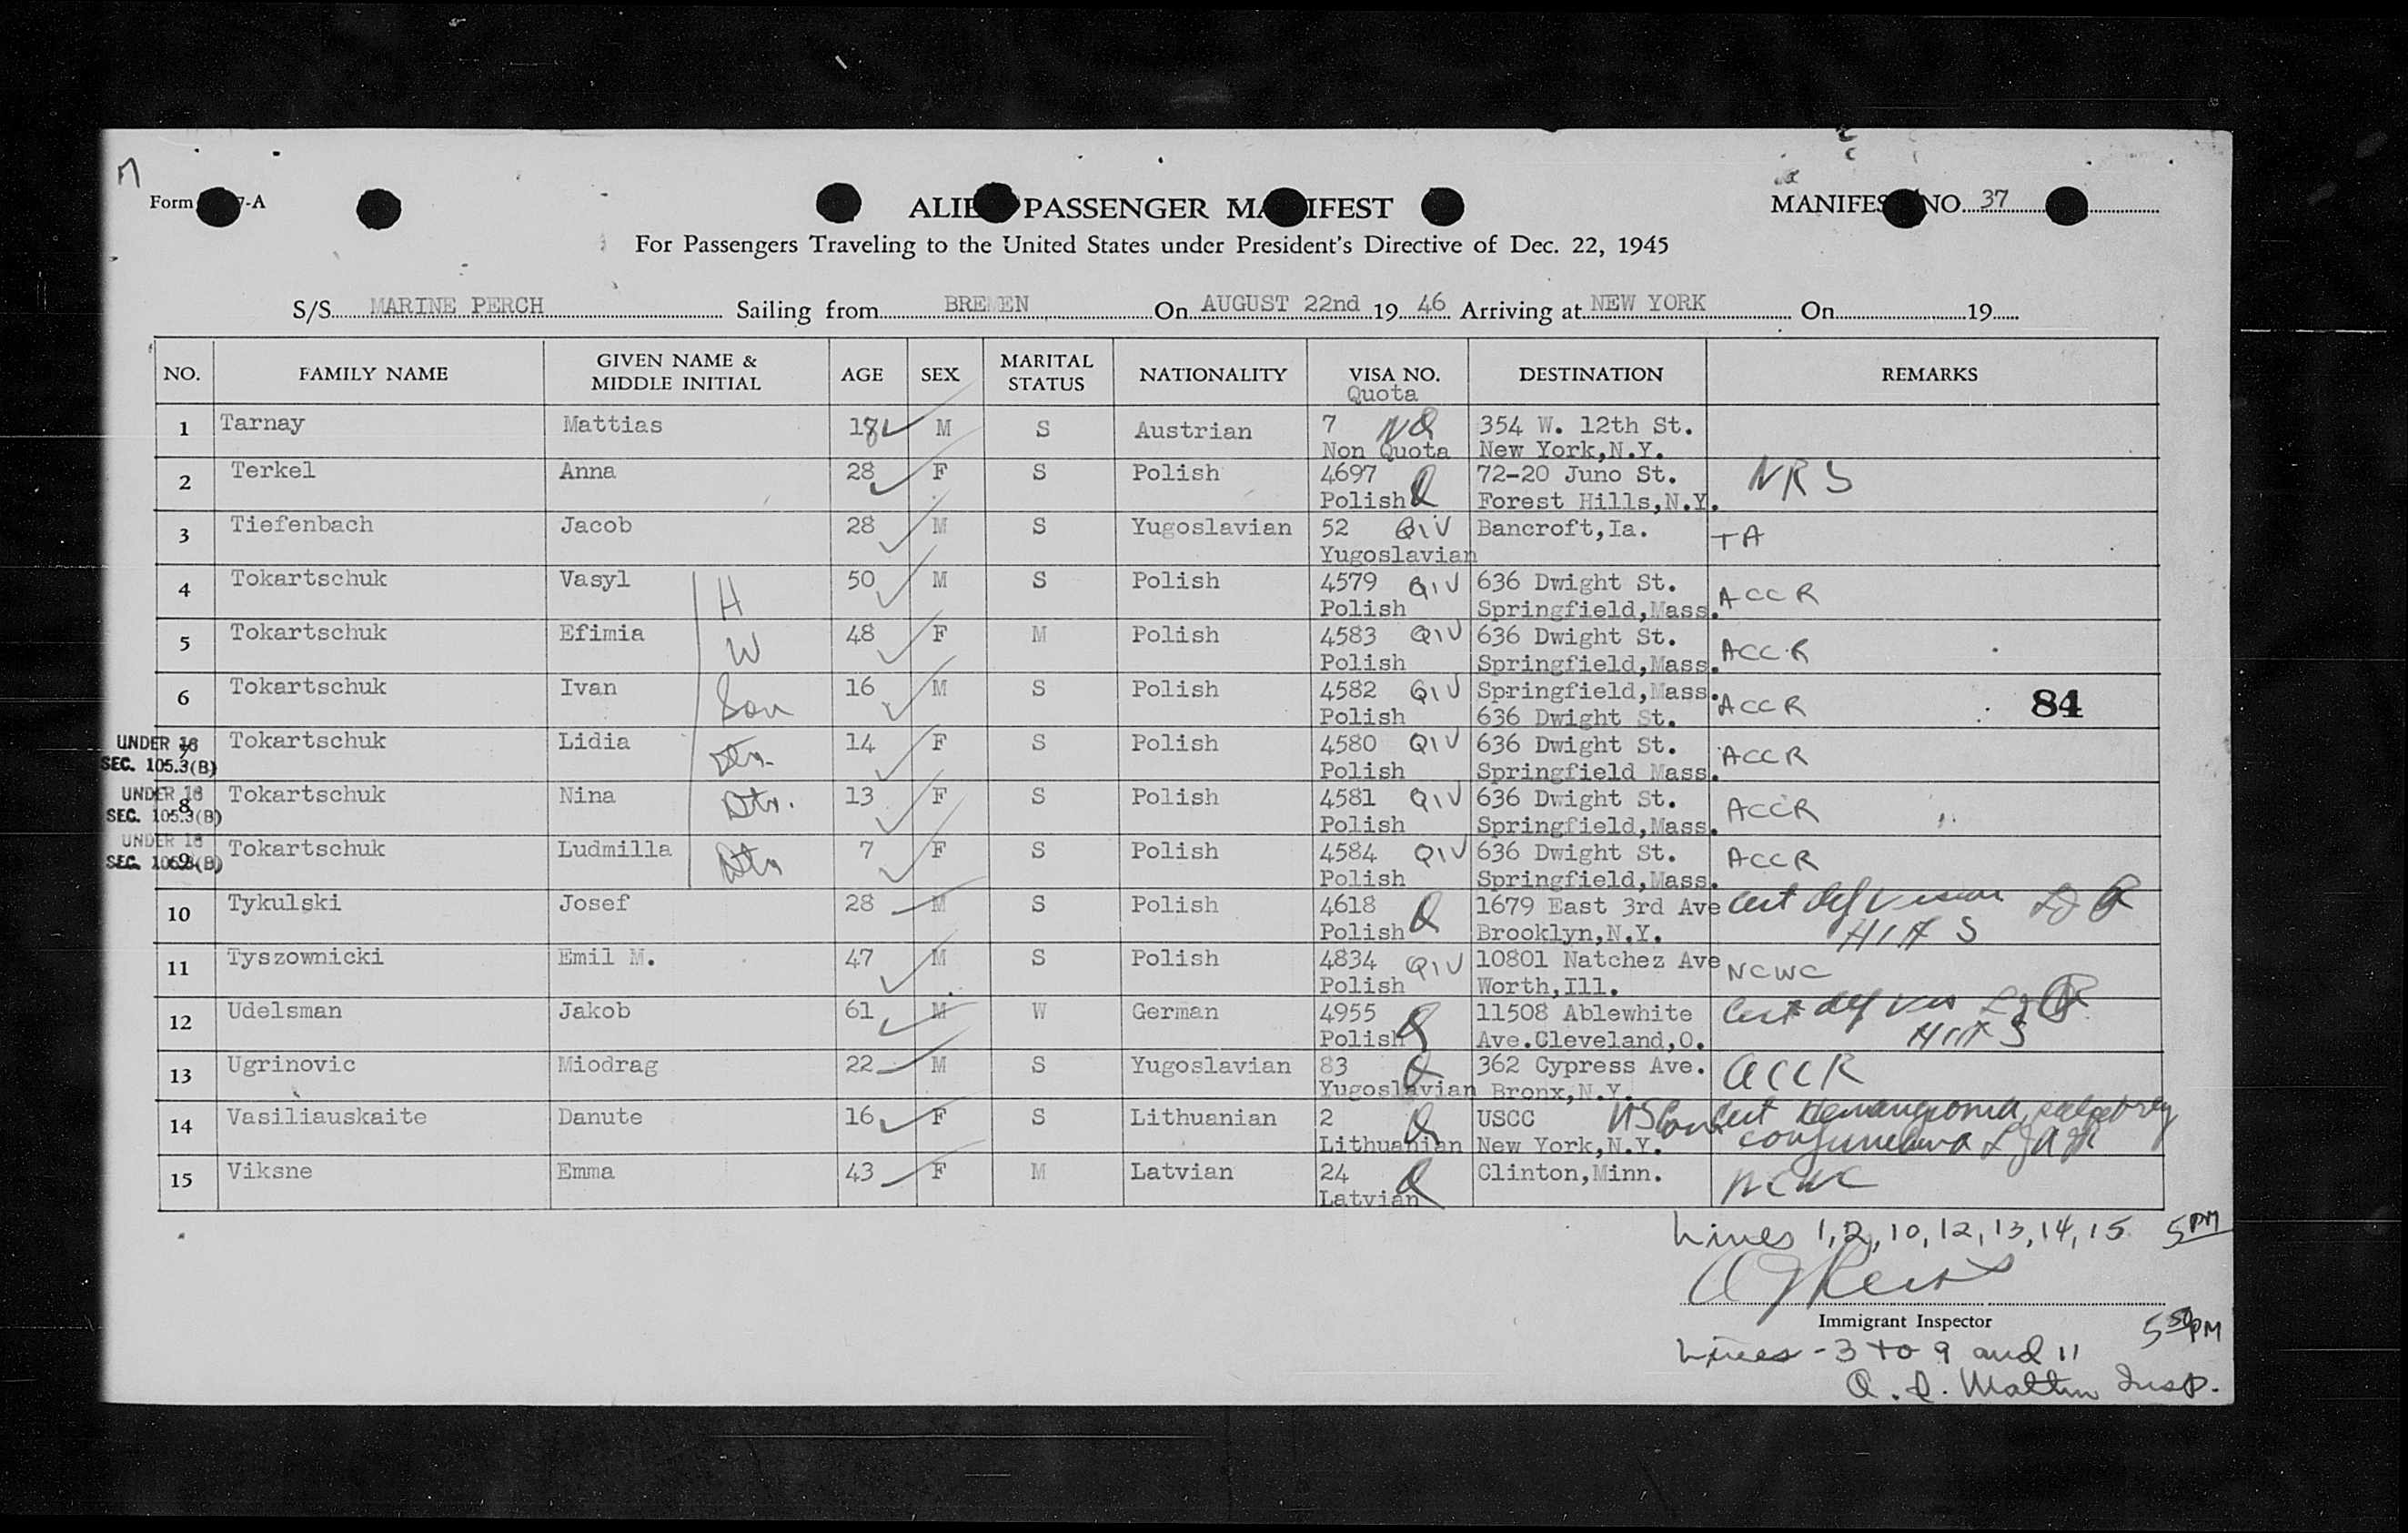 Form 7-A
ALIE PASSENGER MA IFEST
MANIFES NO. 37
For Passengers Traveling to the United States under President's Directive of Dec. 22, 1945
S/S MARINE PERCH Sailing from BREMEN On AUGUST 22nd 19 46 Arriving at NEW YORK On 19
NO. FAMILY NAME GIVEN NAME & MIDDLE INITIAL AGE SEX MARITAL STATUS NATIONALITY VISA NO. Quota DESTINATION REMARKS
1 Tarnay Mattias 18 M S Austrian 7 NQ 354 W. 12th St.
Non Quota New York,N.Y.
2 Terkel Anna 28 F S Polish 4697 Q 72-20 Juno St. NRS
Polish Forest Hills,N.Y.
3 Tiefenbach Jacob 28 M S Yugoslavian 52 QIV Bancroft,Ia. TA
Yugoslavian
4 Tokartschuk Vasyl H 50 M S Polish 4579 QIV 636 Dwight St. ACCR
Polish Springfield,Mass.
5 Tokartschuk Efimia W 48 F M Polish 4583 QIV 636 Dwight St. ACCR
Polish Springfield,Mass.
6 Tokartschuk Ivan Son 16 M S Polish 4582 QIV Springfield,Mass. ACCR 84
Polish 636 Dwight St.
UNDER 16
SEC. 105.3(B)
7 Tokartschuk Lidia Dtr. 14 F S Polish 4580 QIV 636 Dwight St. ACCR
Polish Springfield Mass.
UNDER 16
SEC. 105.3(B)
8 Tokartschuk Nina Dtr. 13 F S Polish 4581 QIV 636 Dwight St. ACCR
Polish Springfield,Mass.
UNDER 16
SEC. 105.3(B)
9 Tokartschuk Ludmilla Dtr 7 F S Polish 4584 QIV 636 Dwight St. ACCR
Polish Springfield,Mass.
10 Tykulski Josef 28 M S Polish 4618 Q 1679 East 3rd Ave Cert def vision
Polish Brooklyn,N.Y. HIAS
11 Tyszownicki Emil M. 47 M S Polish 4834 QIV 10801 Natchez Ave NCWC
Polish Worth,Ill.
12 Udelsman Jakob 61 M W German 4955 Q 11508 Ablewhite Cert def vis
Polish Ave.Cleveland,O. HIAS
13 Ugrinovic Miodrag 22 M S Yugoslavian 83 Q 362 Cypress Ave. ACCR
Yugoslavian Bronx,N.Y.
14 Vasiliauskaite Danute 16 F S Lithuanian 2 Q USCC Cert
Lithuanian New York,N.Y.
15 Viksne Emma 43 F M Latvian 24 Q Clinton,Minn. NCWC
Latvian
Lines 1,2,10,12,13,14,15 5PM
Immigrant Inspector
5 50 PM
Lines - 3 to 9 and 11
Insp.